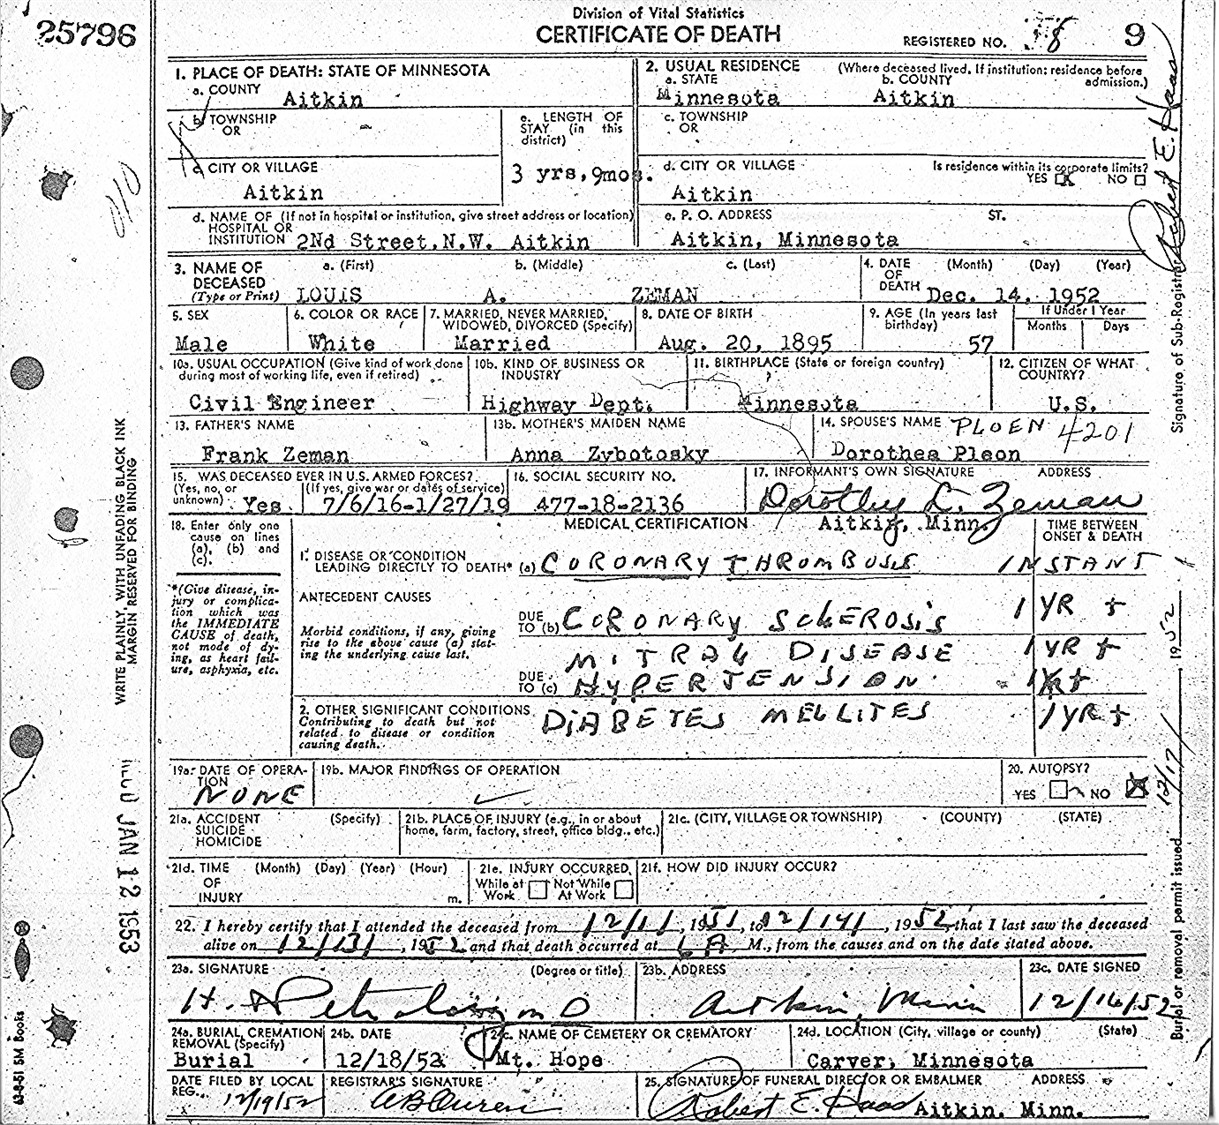 Division of Vital Statistics
25796 CERTIFICATE OF DEATH REGISTERED NO. 58 9
1. PLACE OF DEATH: STATE OF MINNESOTA
a. COUNTY
Aitkin
2. USUAL RESIDENCE (Where deceased lived. If institution: residence before admission.)
a. STATE b. COUNTY
Minnesota Aitkin
b. TOWNSHIP OR
-
e. LENGTH OF STAY (in this district)
3 yrs, 9mos.
c. TOWNSHIP OR
c. CITY OR VILLAGE
Aitkin
d. CITY OR VILLAGE Is residence within its corporate limits?
Aitkin YES X NO
d. NAME OF (If not in hospital or institution, give street address or location)
HOSPITAL OR INSTITUTION 2Nd Street, N.W. Aitkin
e. P. O. ADDRESS ST.
Aitkin, Minnesota
3. NAME OF DECEASED (Type or Print) a. (First) b. (Middle) c. (Last)
LOUiS A. ZEMAN
4. DATE OF DEATH (Month) (Day) (Year)
Dec. 14, 1952
5. SEX
Male
6. COLOR OR RACE
White
7. MARRIED, NEVER MARRIED, WIDOWED, DIVORCED (Specify)
Married
8. DATE OF BIRTH
Aug. 20, 1895
9. AGE (In years last birthday)
57
If Under 1 Year
Months Days
10a. USUAL OCCUPATION (Give kind of work done during most of working life, even if retired)
Civil Engineer
10b. KIND OF BUSINESS OR INDUSTRY
Highway Dept.
11. BIRTHPLACE (State or foreign country)
Minnesota
12. CITIZEN OF WHAT COUNTRY?
U.S.
13. FATHER'S NAME
Frank Zeman
13b. MOTHER'S MAIDEN NAME
Anna Zybotosky
14. SPOUSE'S NAME PLOEN 4201
Dorothea Pleon
15. WAS DECEASED EVER IN U.S. ARMED FORCES?
(Yes, no, or unknown) Yes
(If yes, give war or dates of service)
7/6/16-1/27/19
16. SOCIAL SECURITY NO.
477-18-2136
17. INFORMANT'S OWN SIGNATURE ADDRESS
Dorothy L. Zeman
Aitkin, Minn.
18. Enter only one cause on lines (a), (b) and (c).
*(Give disease, injury or complication which was the IMMEDIATE CAUSE of death, not mode of dying, as heart failure, asphyxia, etc.
MEDICAL CERTIFICATION
TIME BETWEEN ONSET & DEATH
1. DISEASE OR CONDITION
LEADING DIRECTLY TO DEATH* (a) CORONARY THROMBUSIS INSTANT
ANTECEDENT CAUSES
Morbid conditions, if any, giving rise to the above cause (a) stating the underlying cause last.
DUE TO (b) CORONARY SCLEROSIS 1 YR +
MITRAL DISEASE 1 YR +
DUE TO (c) HYPERTENSION 1 YR +
2. OTHER SIGNIFICANT CONDITIONS
Contributing to death but not related to disease or condition causing death.
DIABETES MELLITES 1 YR +
19a. DATE OF OPERATION
NONE
19b. MAJOR FINDINGS OF OPERATION
20. AUTOPSY?
YES NO X
21a. ACCIDENT SUICIDE HOMICIDE (Specify)
21b. PLACE OF INJURY (e.g., in or about home, farm, factory, street, office bldg., etc.)
21c. (CITY, VILLAGE OR TOWNSHIP) (COUNTY) (STATE)
21d. TIME OF INJURY (Month) (Day) (Year) (Hour) m.
21e. INJURY OCCURRED
While at Work Not While At Work
21f. HOW DID INJURY OCCUR?
22. I hereby certify that I attended the deceased from 12/1/, 1951, to 12/14/, 1952, that I last saw the deceased
alive on 12/13/, 1952 and that death occurred at 6 A M., from the causes and on the date stated above.
23a. SIGNATURE (Degree or title)
23b. ADDRESS
Aitkin, Minn
23c. DATE SIGNED
12/16/52
24a. BURIAL, CREMATION REMOVAL (Specify)
Burial
24b. DATE
12/18/52
24c. NAME OF CEMETERY OR CREMATORY
Mt. Hope
24d. LOCATION (City, village or county) (State)
Carver, Minnesota
DATE FILED BY LOCAL REG.
12/19/52
REGISTRAR'S SIGNATURE
25. SIGNATURE OF FUNERAL DIRECTOR OR EMBALMER ADDRESS
Robert E. Haas Aitkin, Minn.
WRITE PLAINLY, WITH UNFADING BLACK INK
MARGIN RESERVED FOR BINDING
JAN 12 1953
Books
Robert E. Haas
Signature of Sub-Registrar
Burial or removal permit issued 12/17/, 1952